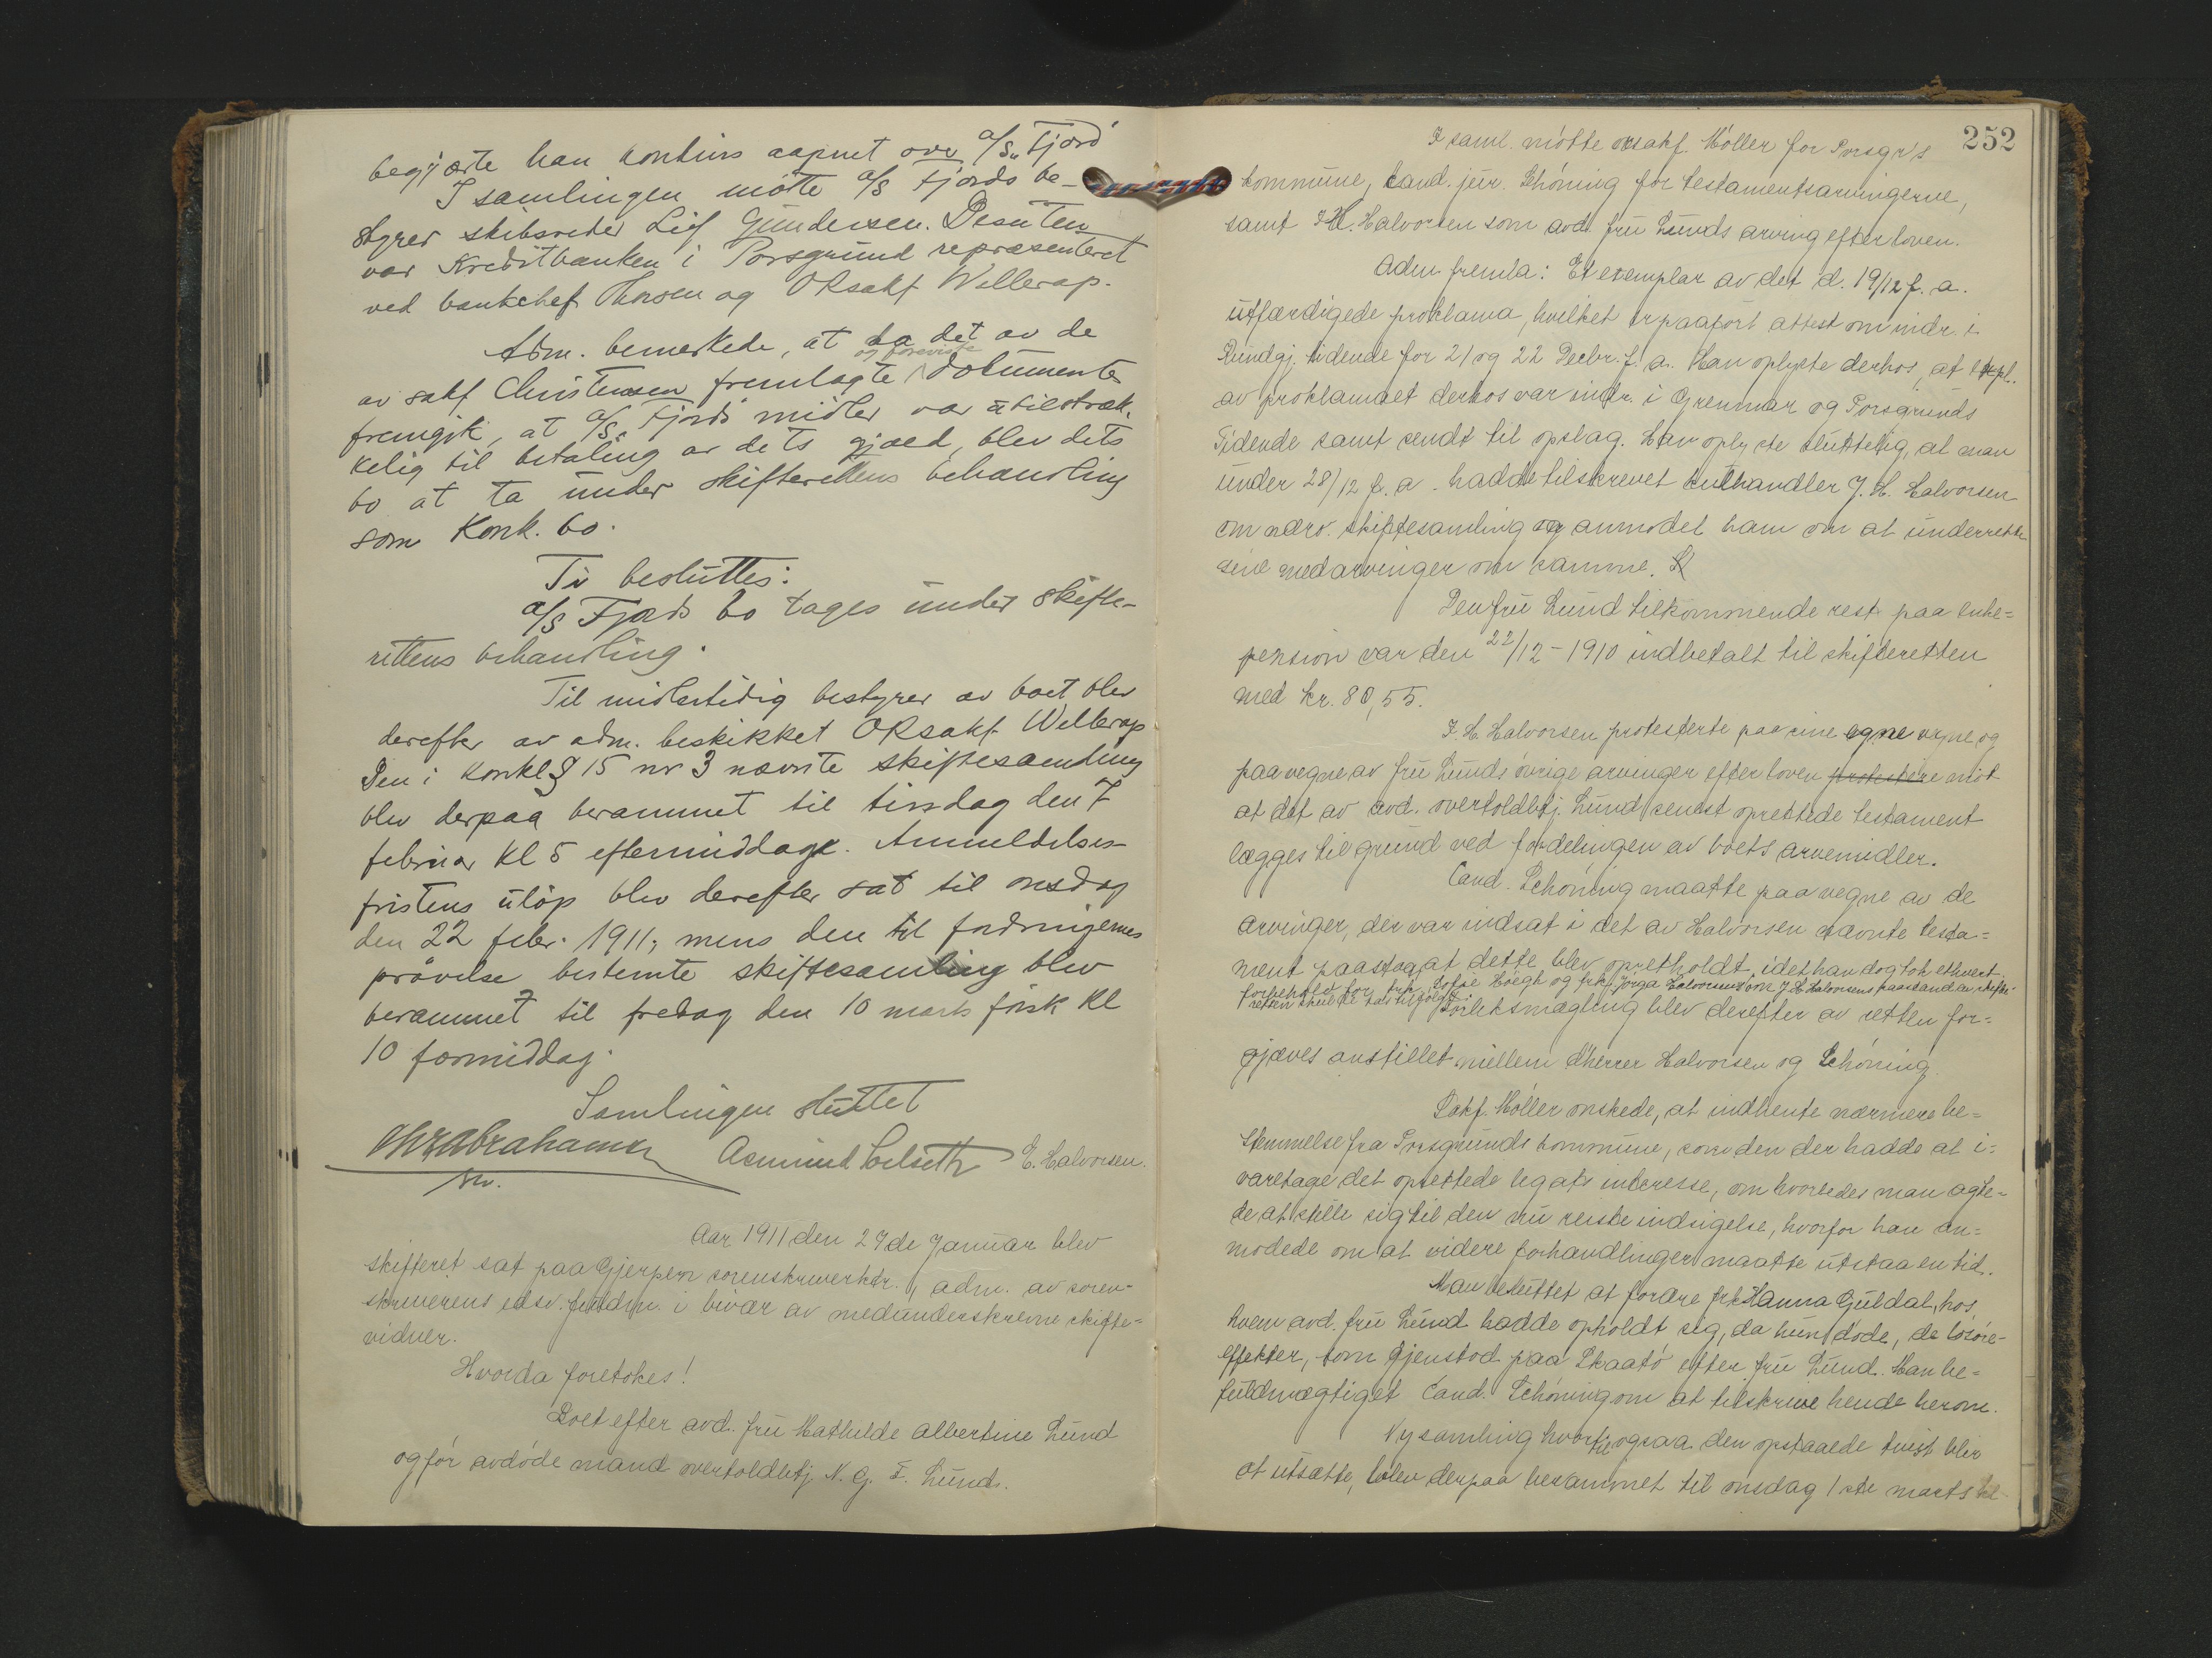 begjærte han konkurs aapnet over a/s „Fjord"
I samlingen møtte a/s Fjords be-
styrer skibsreder Leif Gundersen. Desuten
var Kreditbanken i Porsgrund repræsenteret
ved bankchef Thorsen og ORsakf Wellerop.
Adm. bemerkede, at da det av de
og foreviste
av sakf Christensen fremlagte dokumenter
fremgik, at a/s „Fjords" midler var utilstræk-
kelig til betaling av dets gjæld, blev dets
bo at ta under skifterettens behandling
som Konk. bo.
Ti besluttes:
a/s Fjords bo tages under skifte-
rettens behandling.
Til midlertidig bestyrer av boet blev
derefter av adm. beskikket ORsakf Wellerop
Den i konkl § 15 nr 3 nævnte skiftesamling
blev derpaa berammet til tirsdag den 7
februar Kl 5 eftermiddag. Anmeldelses-
fristens utløp blev derefter sat til onsdag
den 22 febr. 1911, mens den til fordringernes
prøvelse bestemte skiftesamling blev
berammet til fredag den 10 marts førsk Kl
10 formiddag.
Samlingen sluttet
Chr Abrahamsen Asmund Selseth E. Halvorsen.
Aar 1911 den 27de Januar blev
skifteret sat paa Gjerpen sorenskriverktr., adm. av soren-
skriverens edsv. fuldm. i bivær av medunderskrevne skifte=
vidner.
Hvorda foretokes!
Boet efter avd. fru Mathilde Albertine Lund
og før avdøde mand overtoldbtj N. G. F. Lund.
252
I saml. møtte orsakf. Møller for Porsgr's
kommune, Cand. jur. Schøning for testamentsarvingerne,
samt J H. Halvorsen som avd. fru Lunds arving efter loven.
Adm. fremla: Et exemplar av det d. 19/12 f. a.
utfærdigede proklama, hvilket er paaført attest om indr. i
Kundgj. tidende for 21 og 22 Decbr. f. a. Han oplyste derhos, at 1 expl.
av proklamaet derhos var indr. i Grenmar og Porsgrunds
Tidende samt sendt til opslag. Han oplyste sluttelig, at man
under 28/12 f. a. hadde tilskrevet kulhandler J. H. Halvorsen
om nærv. skiftesamling og anmodet ham om at underrette
sine medarvinger om samme.
Den fru Lund tilkommende rest paa enke=
pension var den 22/12 - 1910 indbetalt til skifteretten
med kr. 80,55.
J. H. Halvorsen protesterte paa sine egne vegne og
paa vegne av fru Lunds øvrige arvinger efter loven protestere mot
at det av avd. overtoldbtj. Lund senest oprettede testament
lægges til grund ved fordelingen av boets arvemidler.
Cand. Schøning maatte paa vegne av de
arvinger, der var indsat i det av Halvorsen nævnte testa=
ment paastaa at dette blev opretholdt, idet han dog tok ethvert
forbehold for frk. Sofie Høegh og frk. Jørga Halvorsen om J. H. Halvorsens paastand av skifte-
retten skulde tas tilfølge.
Forliksmægling blev derefter av retten for=
gjæves anstillet mellem d'herrer Halvorsen og Schøning.
Sakf. Møller ønskede, at indhente nærmere be=
stemmelse fra Porsgrunds kommune, som den der hadde at i=
varetage det oprettede legats interesse, om hvorledes man agte=
de at stille sig til den nu reiste indsigelse, hvorfor han an=
modede om at videre forhandlinger maatte utstaa en tid.
Man besluttet at fordre frk. Hanna Guldal, hos
hvem avd. fru Lund hadde opholdt sig, da hun døde, de løsøre-
effekter, som gjenstod paa Skaatø efter fru Lund. Man be=
fuldmægtiget Cand. Schøning om at tilskrive hende herom.
Ny samling hvortil ogsaa den opstaaede tvist blir
at utsætte, blev derpaa berammet til onsdag 1ste marts kl